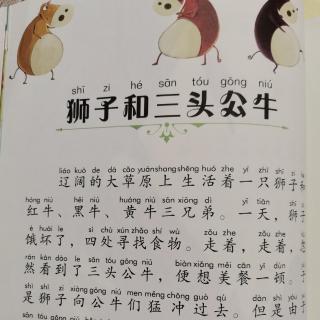 shī zi hé sān tóu gōng niú
狮子和三头公牛
liáo kuò de dà cǎo yuán shang shēng huó zhe yì zhī shī
辽阔的大草原上生活着一只狮子和
hóng niú hēi niú huáng niú sān xiōng dì
红牛、黑牛、黄牛三兄弟。一天，狮
è huài le sì chù xún zhǎo shí wù zǒu zhe zǒu zhe
饿坏了，四处寻找食物。走着，走着，
rán kàn dào le sān tóu gōng niú biàn xiǎng měi cān yí dùn
然看到了三头公牛，便想美餐一顿。
shì shī zi xiàng gōng niú men měng chōng guò qù dàn shì
是狮子向公牛们猛冲过去。但是由